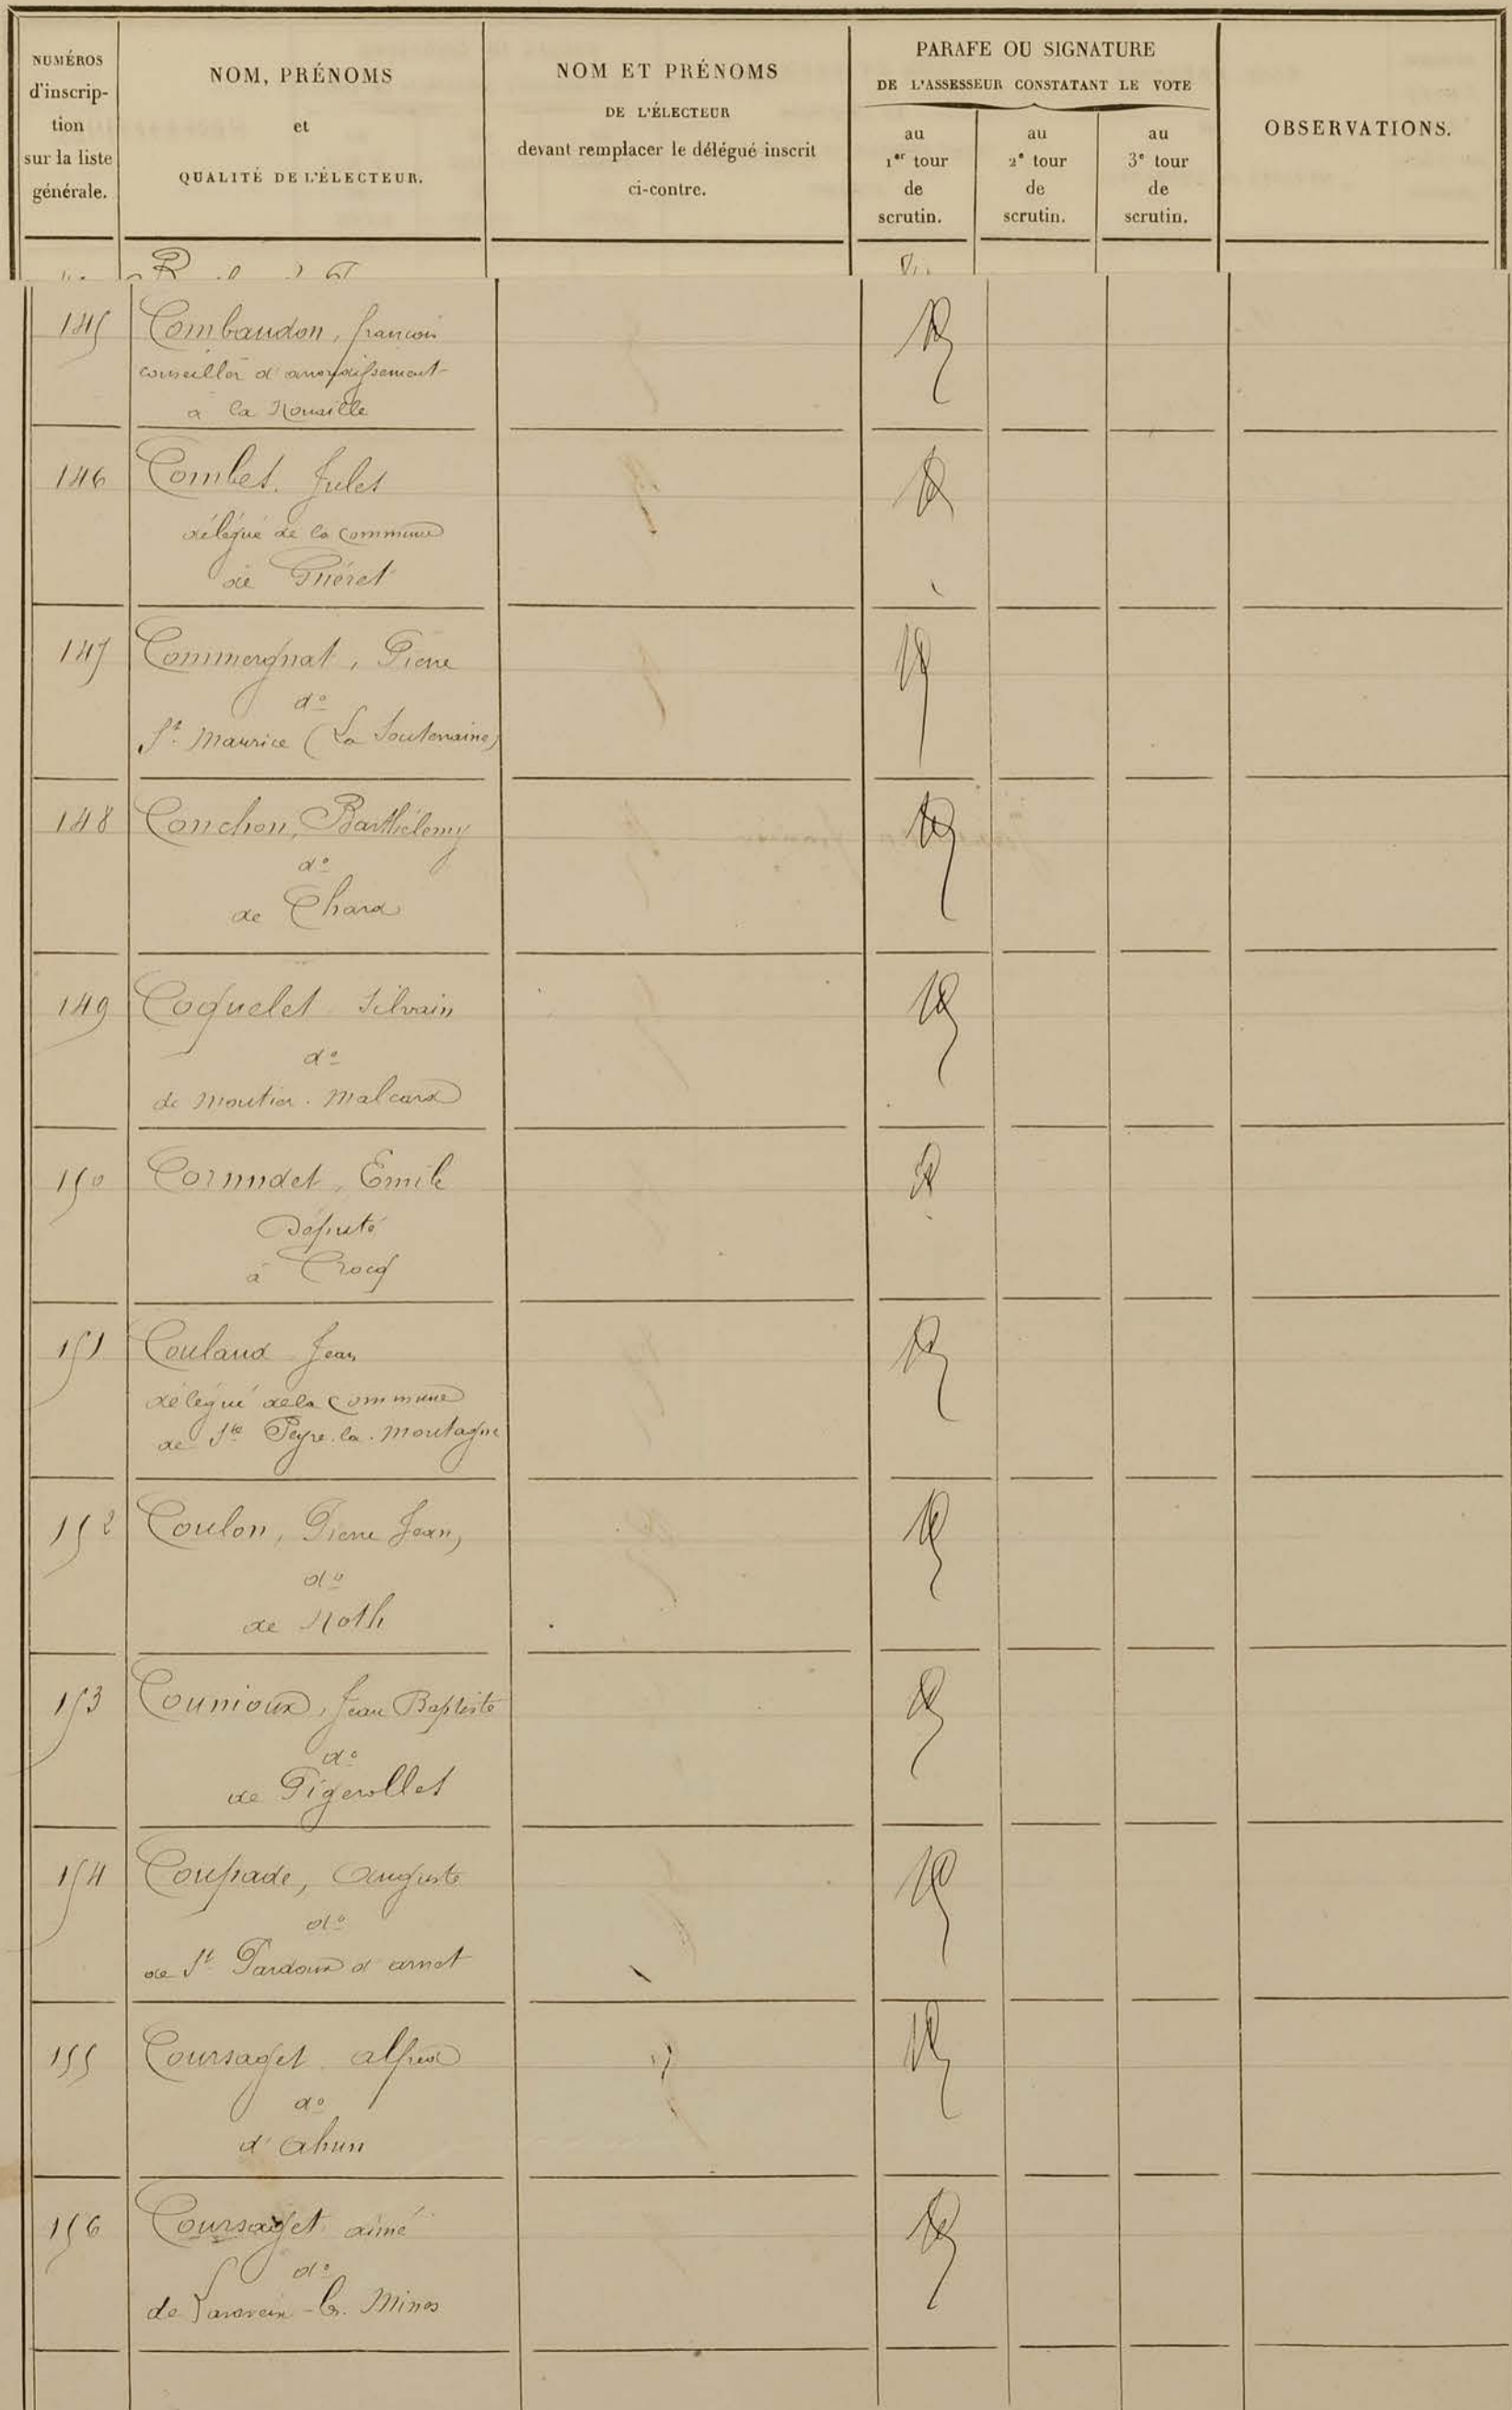 NUMÉROS
d'inscrip-
tion
sur la liste
générale.
NOM, PRÉNOMS
et
QUALITÉ DE L'ÉLECTEUR.
NOM ET PRÉNOMS
DE L'ÉLECTEUR
devant remplacer le délégué inscrit
ci-contre.
PARAFE OU SIGNATURE
DE L'ASSESSEUR CONSTATANT LE VOTE
au
1er tour
de
scrutin.
au
2e tour
de
scrutin.
au
3e tour
de
scrutin.
OBSERVATIONS.
145 Combaudon, françois
conseiller d'arrondissement
à la Nouaille
146 Combes. Jules
délégué de la commune
de Guéret
147 Commergnat, Pierre
do
St Maurice (La Souterraine)
148 Conchon, Barthélemy
do
de Chard
149 Coquelet Silvain
do
de Moutier. Malcard
150 Cornudet, Emile
Député
à Crocq
151 Couland Jean
délégué de la commune
de St Peyre. la. Montagne
152 Coulon, Pierre Jean,
do
de Noth
153 Counioux, Jean Baptiste
do
de Gigerolles
154 Coupade, Auguste
do
de St Pardoux d'arnet
155 Coursaget. alfred
do
d'Ahun
156 Coursaget aimé
do
de Lavaveix-les. Mines